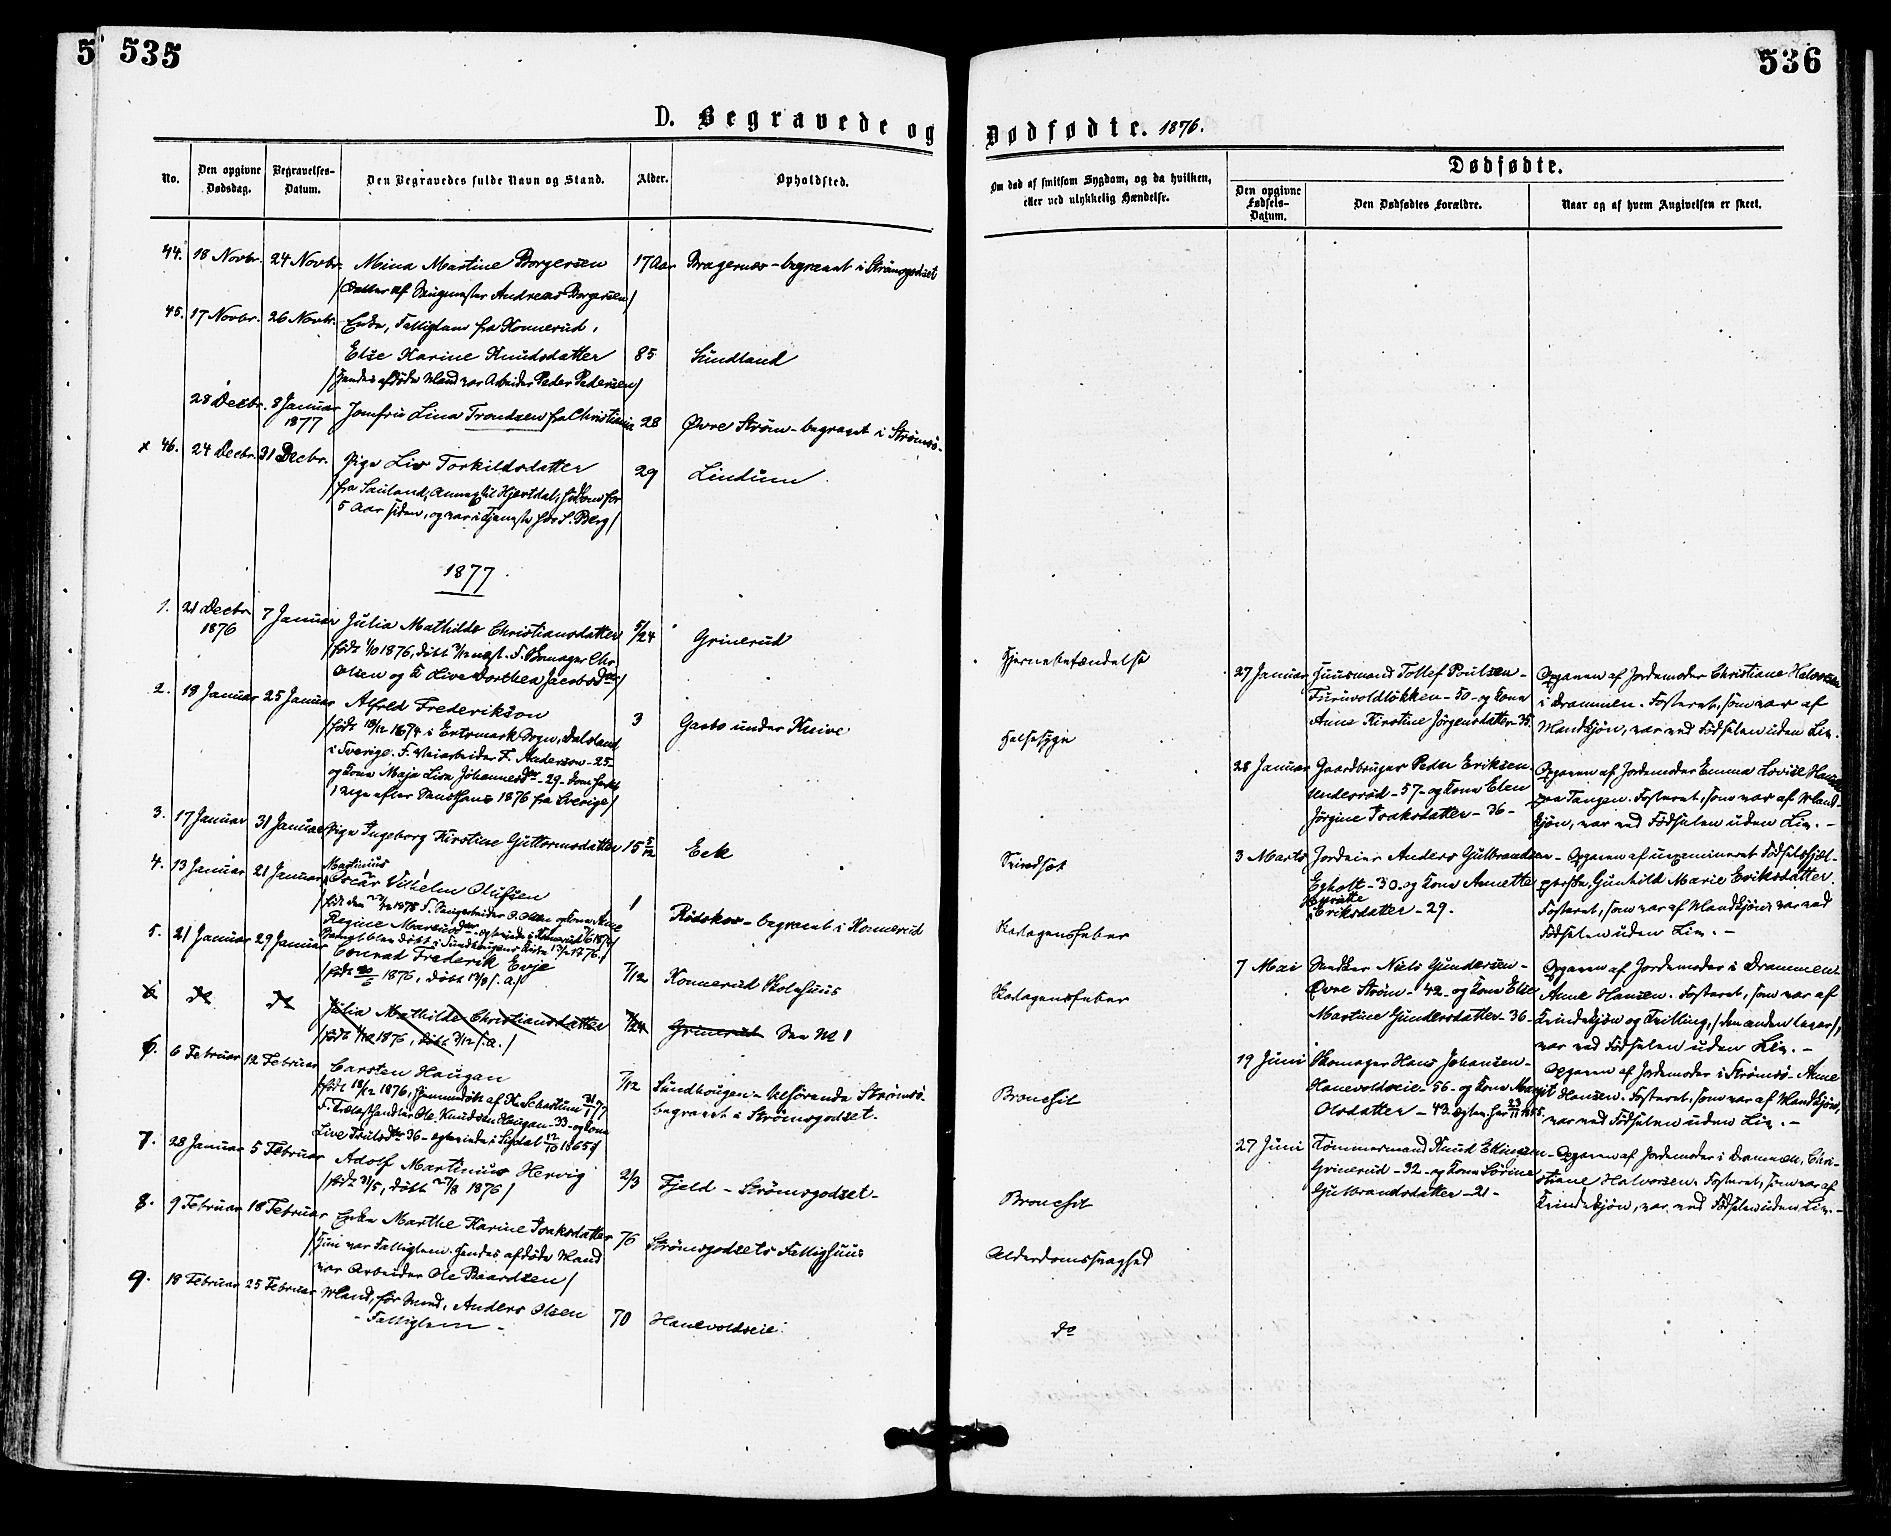 5
535
536
D. Begravede og Dødfødte. 1876.
No.
Den opgivne Dødsdag.
Begravelses-Datum.
Den Begravedes fulde Navn og Stand.
Alder.
Opholdsted.
Om død af smitsom Sygdom, og da hvilken, eller ved ulykkelig Hændelse.
Dødfødte.
Den opgivne Fødsels-Datum.
Den Dødfødtes Forældre.
Naar og af hvem Angivelsen er skeet.
44. 18 Novbr. 24 Novbr. Mina Martine Borgersen 17 Aar Bragernes - begravet i Strömsgodset
/Datter af Andreas Borgersen/
45. 17 Novbr. 26 Novbr. Enke, Fattiglem fra Konnerud,
Else Karine Knudsdatter 85 Sundland
/hendes afdøde Mand var Arbeider Peder Pedersen/
28 Decbr. 8 Januar 1877 Jomfru Lina Trondsen fra Christiania 28 Øvre Strøm - begravet i Strømsö -
x 46. 24 Decbr. 31 Decbr. Pige Liv Torkildsdatter 29 Lindum
/fra Sauland, Annex til Hjertdal, hidkom for
5 Aar siden, og var i tjeneste hos S. Berg/
1877
1. 21 Decbr. 1876 7 Januar Julia Mathilde Christiansdatter 5/24 Grinerud
/født 1/10 1876, døbt 3/12 næst. F. Skomager Chr.
Olsen og K Live Dorthea Jacobsdtr/
Hjernebetændelse
2. 18 Januar 25 Januar Alfred Frederikson 3 Garbo under Knive
/født 18/12 1874 i Ertemark Sogn, Dalsland
i Sverige. F. Veiarbeider F. Anderson - 25 -
og Kone Maja Lisa Johannesdtr - 29 -
1876 fra Sverige/
Halsesyge
3. 17 Januar 31 Januar Pige Ingeborg Kirstine Guttormsdatter 15 5/12 Eek
Svindsot
4. 13 Januar 21 Januar Martinius
Oscar Vilhelm Olufsen 1 Rødskog - begravet i Konnerud
Skarlagensfeber
5. 21 Januar 29 Januar Conrad Frederik Evje 7/12 Konnerud Skolehuus
/født 20/6 1876, døbt 13/8 s. a./
Skarlagensfeber
6 do do Julia Mathilde Christiansdatter 5/24 Grinerud See No 1
/født 1/10 1876, døbt 3/12 s. a./
6. 6 Februar 12 Februar Carsten Haugan 7/12 Sundhougen - Strømsö -
begravet i Strømsgodset.
/født 18/12 1876, hjemmedøbt af H. Schartum 31/1 77
F. Trælasthandler Ole Knudsen Haugan - 33 - og Kone
Live Truls dtr 36 - egteviede i Sigdal 12/10 1865/
Bronchit
7. 28 Januar 5 Februar Adolf Martinius Hervig 2/3 Fjeld - Strømsgodset -
/født 31/5, døbt 27/8 1876/
Bronchit
8. 9 Februar 18 Februar Enke Marthe Karine Isaksdatter 76 Strømsgodsets Fattighuus
/hun var Fattiglem. Hendes afdøde Mand
var Arbeider Ole Baardsen/
Alderdomssvaghed
9. 18 Februar 25 Februar Mand, Anders Olsen 70 Hanevoldseie
- Fattiglem -
do
27 Januar Huusmand Tollef Poulsen -
Furuvoldløkken - 50 - og Kone
Anne Kirstine Jørgensdatter - 35.
Opgaven af Jordemoder Christiane Halvorsen
i Drammen. Fosteret, som var af
Mandkjön, var ved Fødselen uden Liv.
28 Januar Gaardbruger Peder Eriksen
Underød - 57 - og Kone Elen
Jørgine Isaksdatter - 36 -
Opgaven af Jordemoder Emma Lovise
paa Tangen. Fosteret, som var af Mand-
kjøn, var ved Fødselen uden Liv. -
3 Marts Jordeier Anders Gulbrandsen -
Egholt - 30 - og Kone Annette
Eriksdatter - 29.
Opgaven af uexamineret Fødselshjæl-
perske, Gunhild Marie Eriksdatter
Fosteret, som var af Mandkjøn, var ved
Fødselen uden Liv. -
7 Mai Snedker Niels Gundersen -
Øvre Strøm - 42 - og Kone Else
Martine Gundersdatter - 36 -
Opgaven af Jordemoder i Drammen
Anne Hansen. Fosteret, som var af
Kvindekjøn og Tvilling, /den anden lever/,
var ved Fødselen uden Liv. -
19 Juni Skomager Hans Johansen -
Hanevoldseie - 56 - og Kone Margit
Olsdatter - 43.
Opgaven af Jordemoder i Strømsö - Anne
Hansen. Fosteret, som var af Mandkjøn,
var ved Fødselen uden Liv. -
27 Juni Tømmermand Knud Ellingsen -
Grinerud - 32 - og Kone Sörine
Gulbrandsdatter - 21 -
Opgaven af Jordemoder i Drammen, Chri-
stiane Halvorsen. Fosteret, som var af
Kvindekjøn, var ved Fødselen uden Liv. -